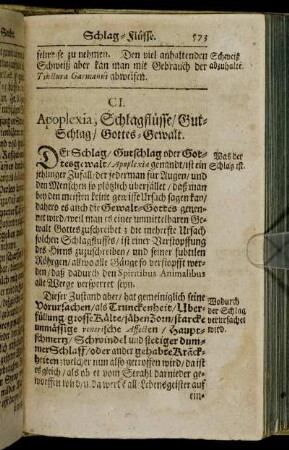 Schlag-Flüsse. 573
selweise zu nehmen. Den viel anhaltenden
Schweiß aber kan man mit Gebrauch der
Tinctura Garmanni abweisen.
Schweiß
abzuhalte.
CI.
Apoplexia, Schlagflüsse/ Gut-
Schlag/ Gottes-Gewalt.
DEr Schlag/ Gutschlag oder Got-
tesgewalt/ Apoplexia genandt/ ist ein
jehlinger Zufall/ der jederman für Augen/ und
den Menschen so plötzlich überfället/ daß man
bey den meisten keine gewisse Ursach sagen kan/
dahero es auch die Gewalt-Gottes genen-
net wird/ weil man es einer unmittelbaren Ge-
walt Gottes zuschreibet: die mehrste Ursach
solchen Schlagflusses/ ist einer Verstopffung
des Hirns zuzuschreiben/ und seiner subtilen
Röhrgen/ allwo alle Gänge so verstopfft wer-
den/ daß dadurch den Spiritibus Animalibus
alle Wege versperret seyn.
Was der
Schlag ist.
Dieser Zustand aber/ hat gemeiniglich seine
Vorursachen/ als Trunckenheit/ Uber-
füllung/ grosse Kälte/ jähen Zorn/ starcke
unmässige venerische Affecten/ Haupt-
schmertz/ Schwindel und stetiger dum-
mer Schlaff/ oder ander gehabte Kräck-
heiten: welcher nun also getroffen wird/ da ist
es gleich/ als ob er vom Strahl darnieder ge-
worffen wird/ und da werden all Lebensgeister auf
ein-
Wodurch
der Schlag
verursachet
wird.